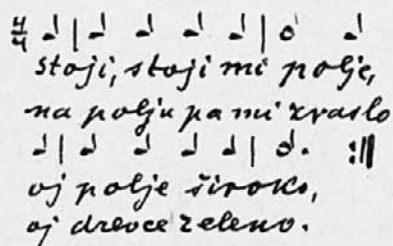 4/4
stoji, stoji mi polje,
na polju pa mi zraslo
oj polje široko,
oj drevce zeleno.